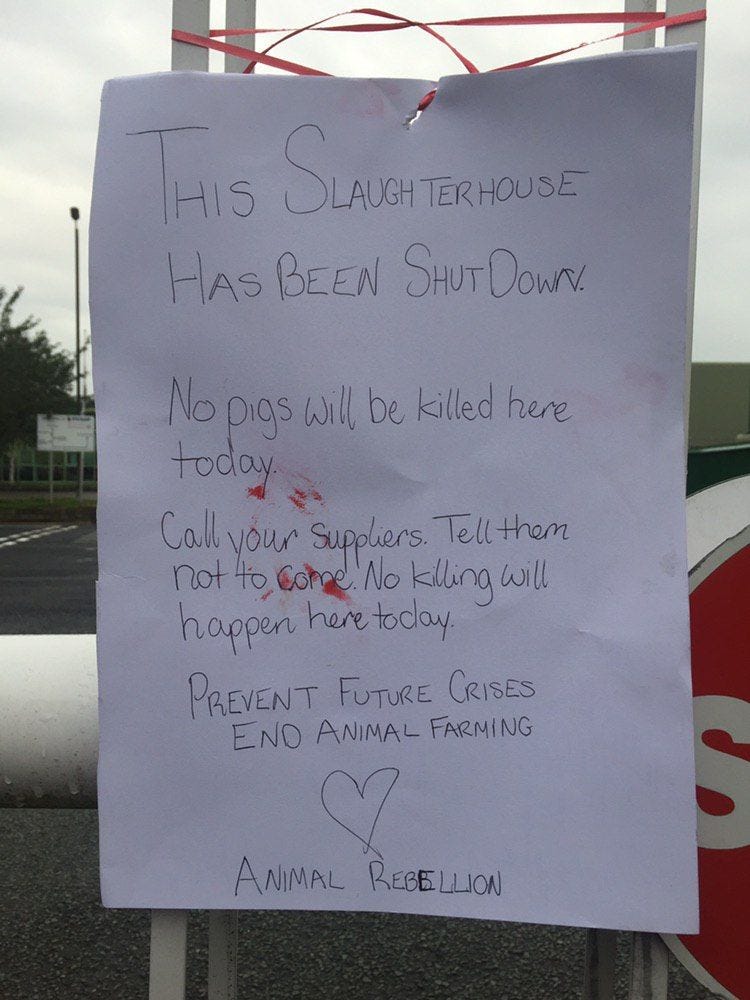 THIS SLAUGHTERHOUSE
HAS BEEN SHUT DOWN.
No pigs will be killed here
today.
Call your suppliers. Tell them
not to come. No killing will
happen here today.
PREVENT FUTURE CRISES
END ANIMAL FARMING
ANIMAL REBELLION
S